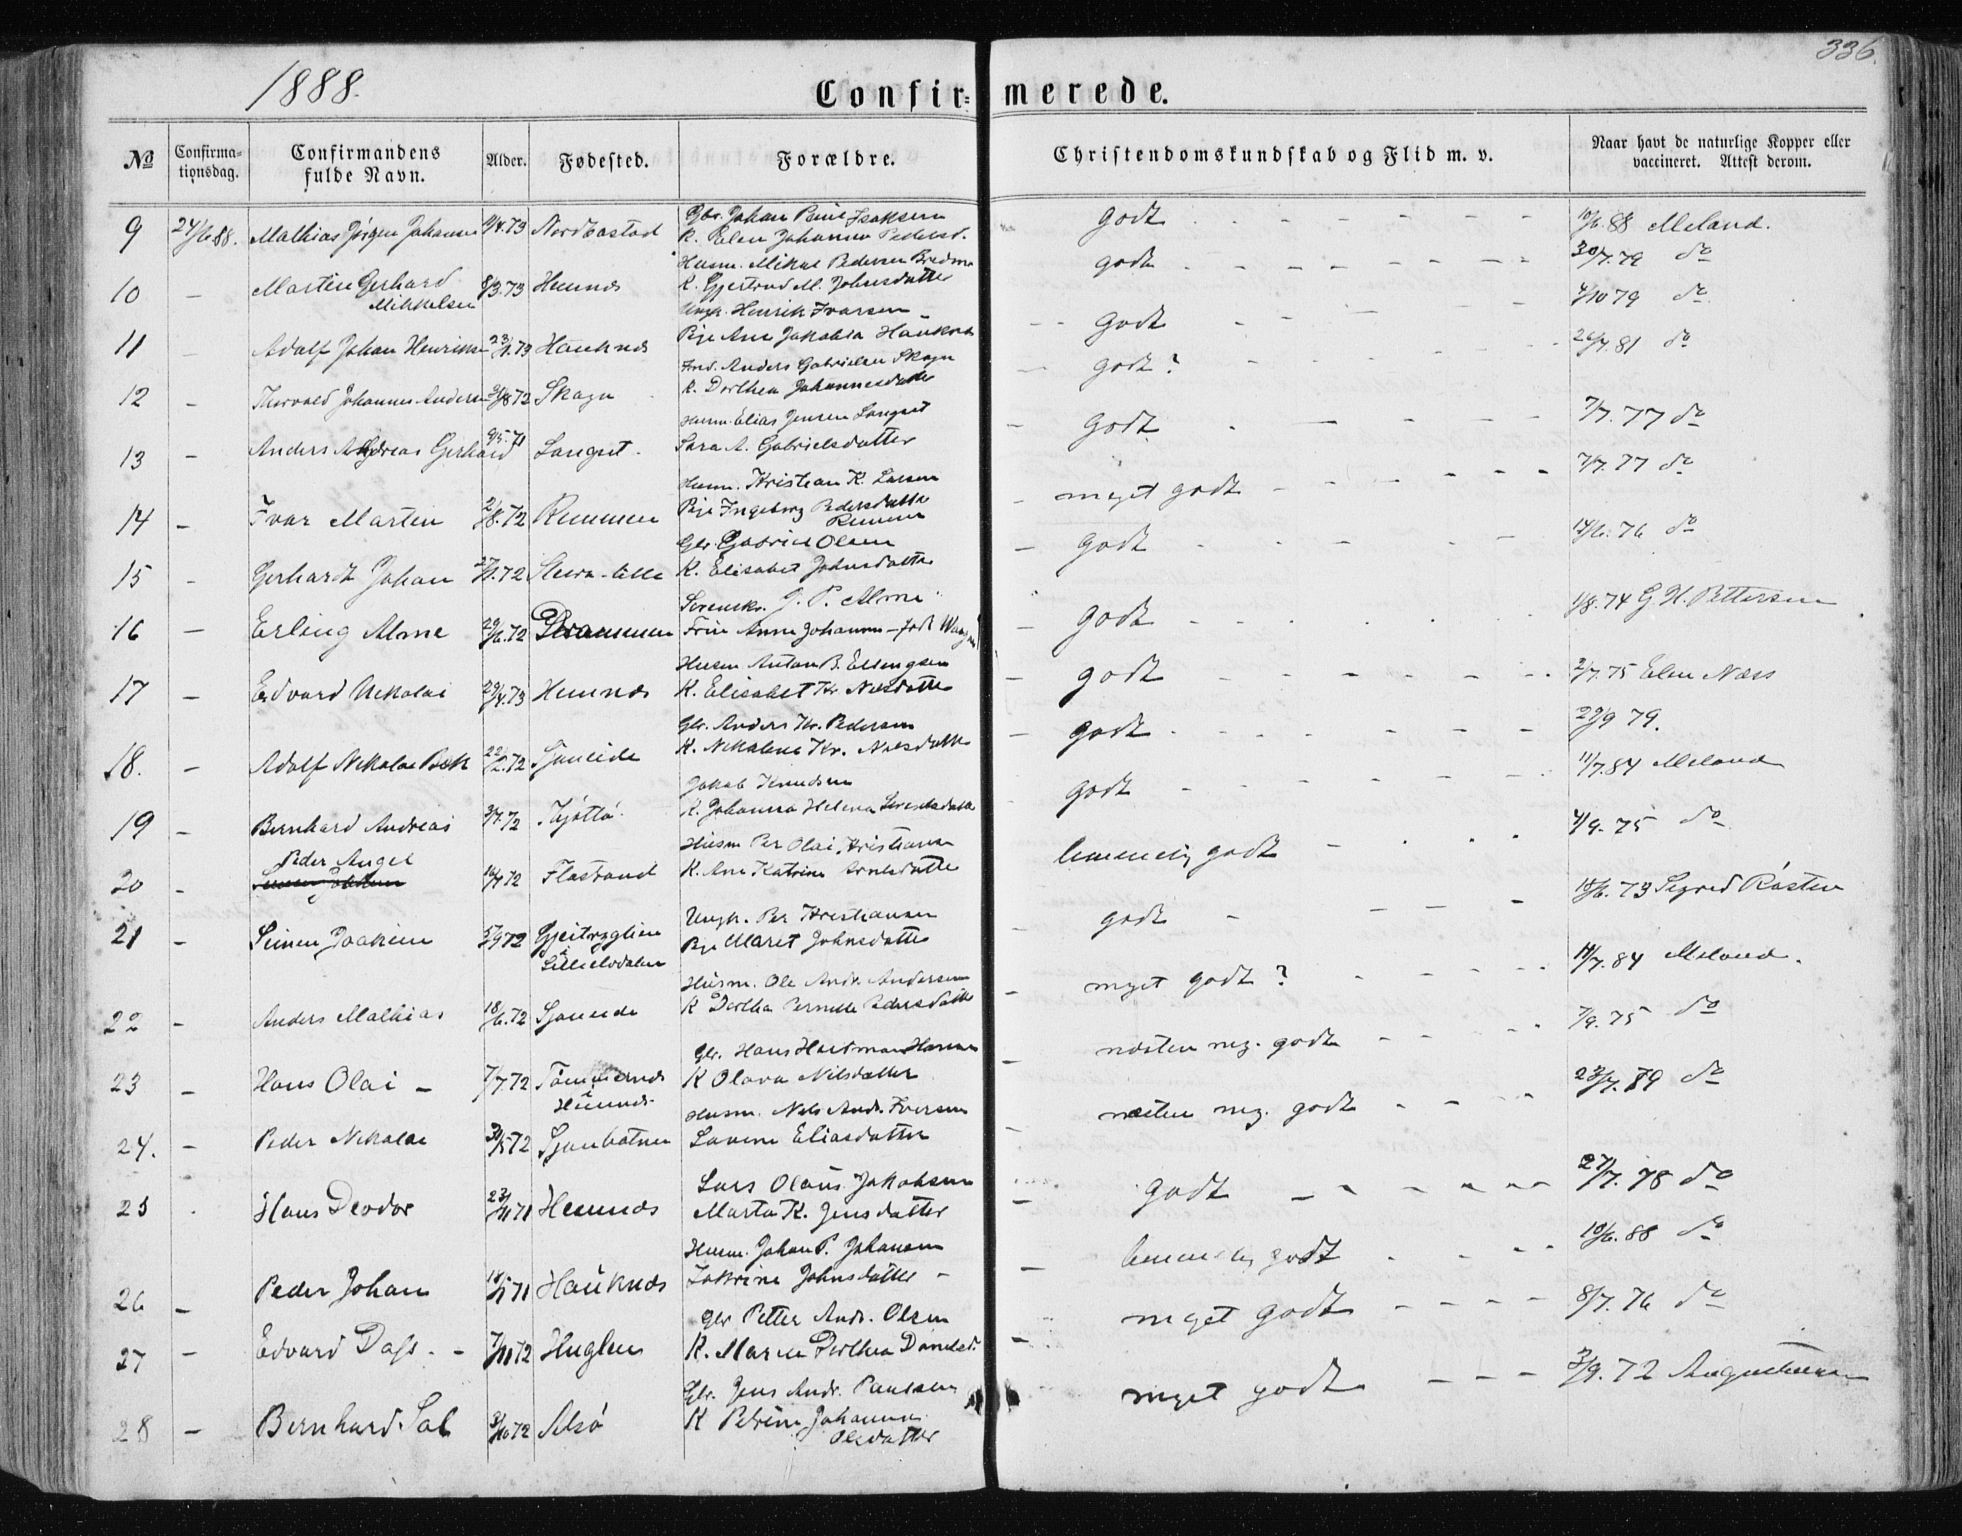 336.
1888.
Confir= merede.
No
Confirma-
tionsdag.
Confirmandens
fulde Navn.
Alder.
Fødested.
Forældre.
Christendomskundskab og Flid m. v.
Naar havt de naturlige Kopper eller
vaccineret. Attest derom.
Johan Isaksen
9 24/6 88. Mathias Jørgen /4.73 K. Johanna Pedersd. godt - - - 10/6.88 Meland.
Husm. Mikal Pedersen
10 - Martin Gerhard 8/3.73 Hemnes K. Gjertrud M. Johnsdatter godt - - - 30/7.79 do
Mikkelsen
Ungk. Henrik Ivarsen
11 Adolf Johan Henriksen 23/1.73 Hauknes Pige Ane Jakobea godt - - - 4/10 79 do
Anders Gabrielsen Skagn
12 - Thorvald Johannes Andersen 31/8 72 Skagn K. Dorthea Johannesdatter godt? - - 26/7.81 do
Husm. Elias Jensen Langset
13 - Anders Andreas Gerhard 9/5.71 Langset Sara A. Gabrielsdatter godt - - - 7/7.77 do
Husm. Kristian K. Larsen
14 - Ivar Martin 2/8.72 Pige Ingeborg Pedersdatter meget godt - - - 7/7.77 do
Gbr. Gabriel Olsen
15 - Gerhardt Johan 27/1.72 K. Elisabet Johnsdatter godt - - - 14/6.76 do
P. Alme
16 - Erling Alme 29/6.72 Drammen Fru Anne Johanne født godt - - - 1/8.74 G H. Pettersen
Husm Anton B. Ellingsen
17 - Edvard Nikolai 29/4.73 Hemnes K. Elisabet Kr. Nilsdatter godt - - - 2/7.75 Elen Næss
Gbr. Anders Kr. Pedersen
18. - Adolf Nikolai Bæk 22/2.72 Sjoneide K. Nikoline Kr. Nilsdatter godt - - - 29/9 79.
Jakob Knudsen
19 - Bernhard Andreas 3/7.72 Tjøtta K. Johanna Helena godt - - - 11/7.84 Meland
Husm Per Olai Kristiansen
Peder Angel
20 - 16/7 72 Flostrand K. Ane Katrine Arntsdatter temmelig godt - - 4/9.75 do
Ungk. Per Kristiansen
21 - Simon Joakim 5/9 72 Pige Maret Johnsdatter godt - - - 18/6.73 Sigrid Røsten
Husm. Ole Andr. Andersen
22 - Anders Mathias 18/6.72 Sjoneide K Dorthea Pernille Pedersdatter meget godt? - - - 11/7.84 Meland.
Gbr. Hans Hartman Hansen
23 - Hans Olai - 7/7.72 K Olava Nilsdatter næsten meg. godt - - 7/9.75 do
Hemnes
Husm. Nils Andr. Iversen
24. - Peder Nikolai 31/5 72 Sjonbotnen Lovine Eliasdatter næsten meg. godt - - - 23/7.89 do
Lars Olaus Jakobsen
25 Hans Deodor 23/11 71 Hemnes Marta K. Jensdatter godt - - - 27/7.78 do
Husm. Johan P. Johansen
26 - Peder Johan 18/1 71 Hauknes Johnsdatter - temmelig godt - - - 10/6.88 do
Gbr Petter Andr. Olsen
27 - Edvard Dass. - 7/11 72 Huglen K. Maren Dorthea Danielsd. meget godt - - - 8/7.76 do
Gbr. Jens Andr. Paulsen
28 - Bernhard Sal 3/10 72 Alsø K Petrine Johanna meget godt - - - 3/9.72 Augustinussen
Olsdatter